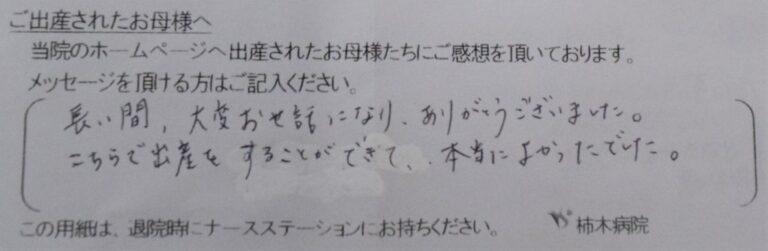 ご出産されたお母様へ
当院のホームページへ出産されたお母様たちにご感想を頂いております。
メッセージを頂ける方はご記入ください。
長い間、大変お世話になり、ありがとうございました。
こちらで出産をすることができて、本当によかったでした。
この用紙は、退院時にナースステーションにお持ちください。 柿木病院